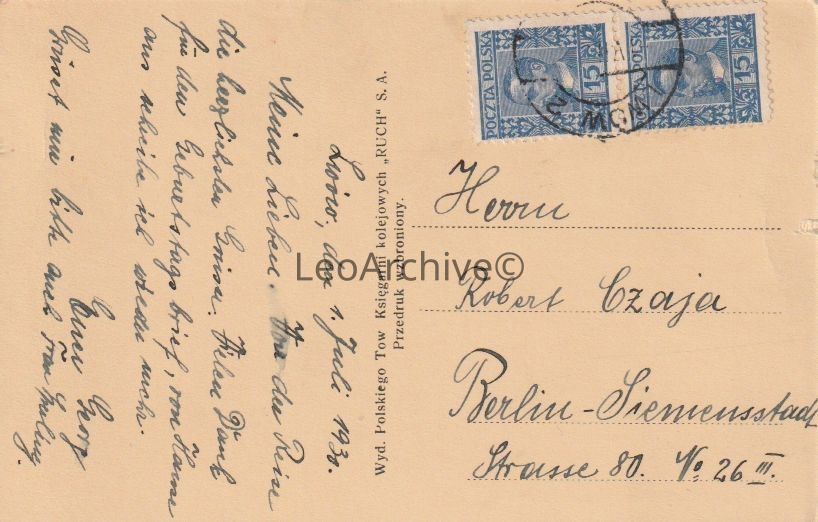 Lwów, den 1. Juli 1930.
Meine Lieben. Von der Reise
die herzlichsten Grüsse. Vielen Dank
für den Geburtstagsbrief, von Hause
aus schreibe ich wieder mehr.
Euer Georg
Grüsst mir bitte auch Frau
Wyd. Polskiego Tow Księgarni kolejowych „RUCH" S. A.
Przedruk wzbroniony.
POCZTA POLSKA
15
POCZTA POLSKA
15
LWÓW 2
Herrn
Robert Czaja
Berlin-Siemensstadt
Strasse 80. No 26 III.
LeoArchive©